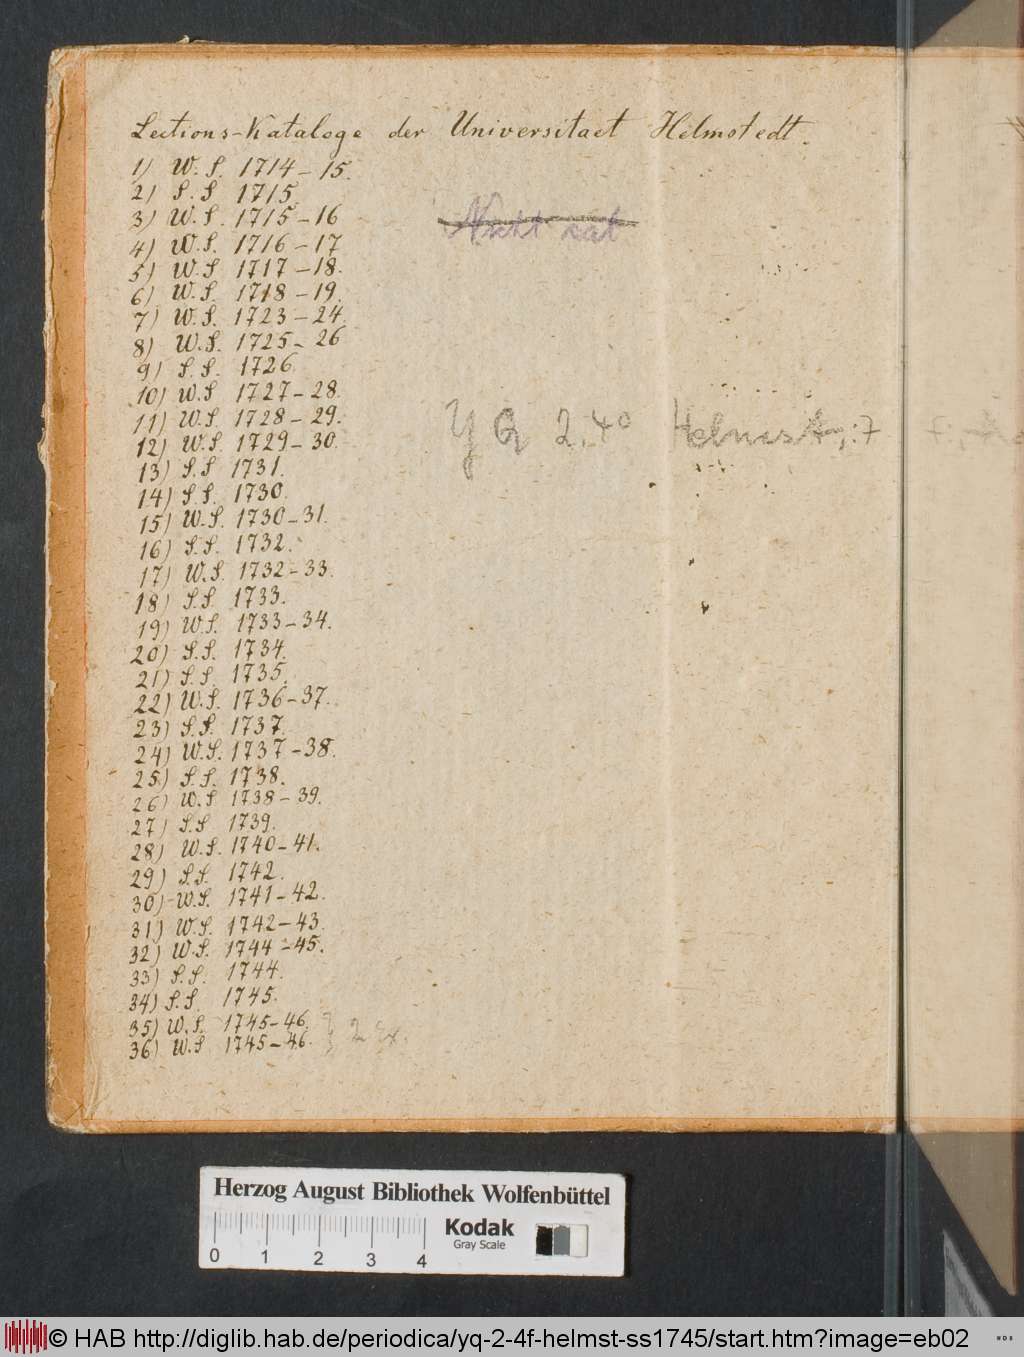 Lections-Kataloge der Universitaet Helmstedt.
1) W. S. 1714-15.
2) S. S 1715.
3) W. S. 1715-16
4) W. S. 1716-17
5) W. S 1717-18.
6) W. S. 1718-19.
7) W. S. 1723-24.
8) W. S. 1725-26
9) S. S. 1726.
10) W. S 1727-28.
11) W. S. 1728-29.
12) W. S. 1729-30.
13) S. S 1731.
14) S. S. 1730.
15) W. S. 1730-31.
16) S. S. 1732.
17) W. S. 1732-33.
18) S. S. 1733.
19) W. S. 1733-34.
20) S. S. 1734.
21) S. S. 1735.
22) W. S. 1736-37.
23) S. S. 1737.
24) W. S. 1737-38.
25) S. S. 1738.
26) W. S 1738-39.
27) S. S 1739.
28) W. S. 1740-41.
29) S. S. 1742.
30) W. S. 1741-42.
31) W. S. 1742-43.
32) W. S. 1744-45.
33) S. S. 1744.
34) S. S. 1745.
35) W. S. 1745-46. } 2 Ex.
36) W. S 1745-46.
Nicht kat
YQ 2. 4° Helmst.:7
Herzog August Bibliothek Wolfenbüttel
Kodak
Gray Scale
0 1 2 3 4
© HAB http://diglib.hab.de/periodica/yq-2-4f-helmst-ss1745/start.htm?image=eb02